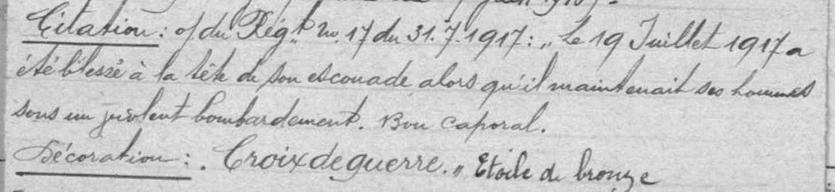 Citation : o/ du Régt No. 17 du 31.7.1917 : " Le 19 Juillet 1917 a
été blessé à la tête de son escouade, alors qu'il maintenait ses hommes
sous un violent bombardement. Bon caporal.
Décoration : . Croix de guerre. " Etoile de bronze